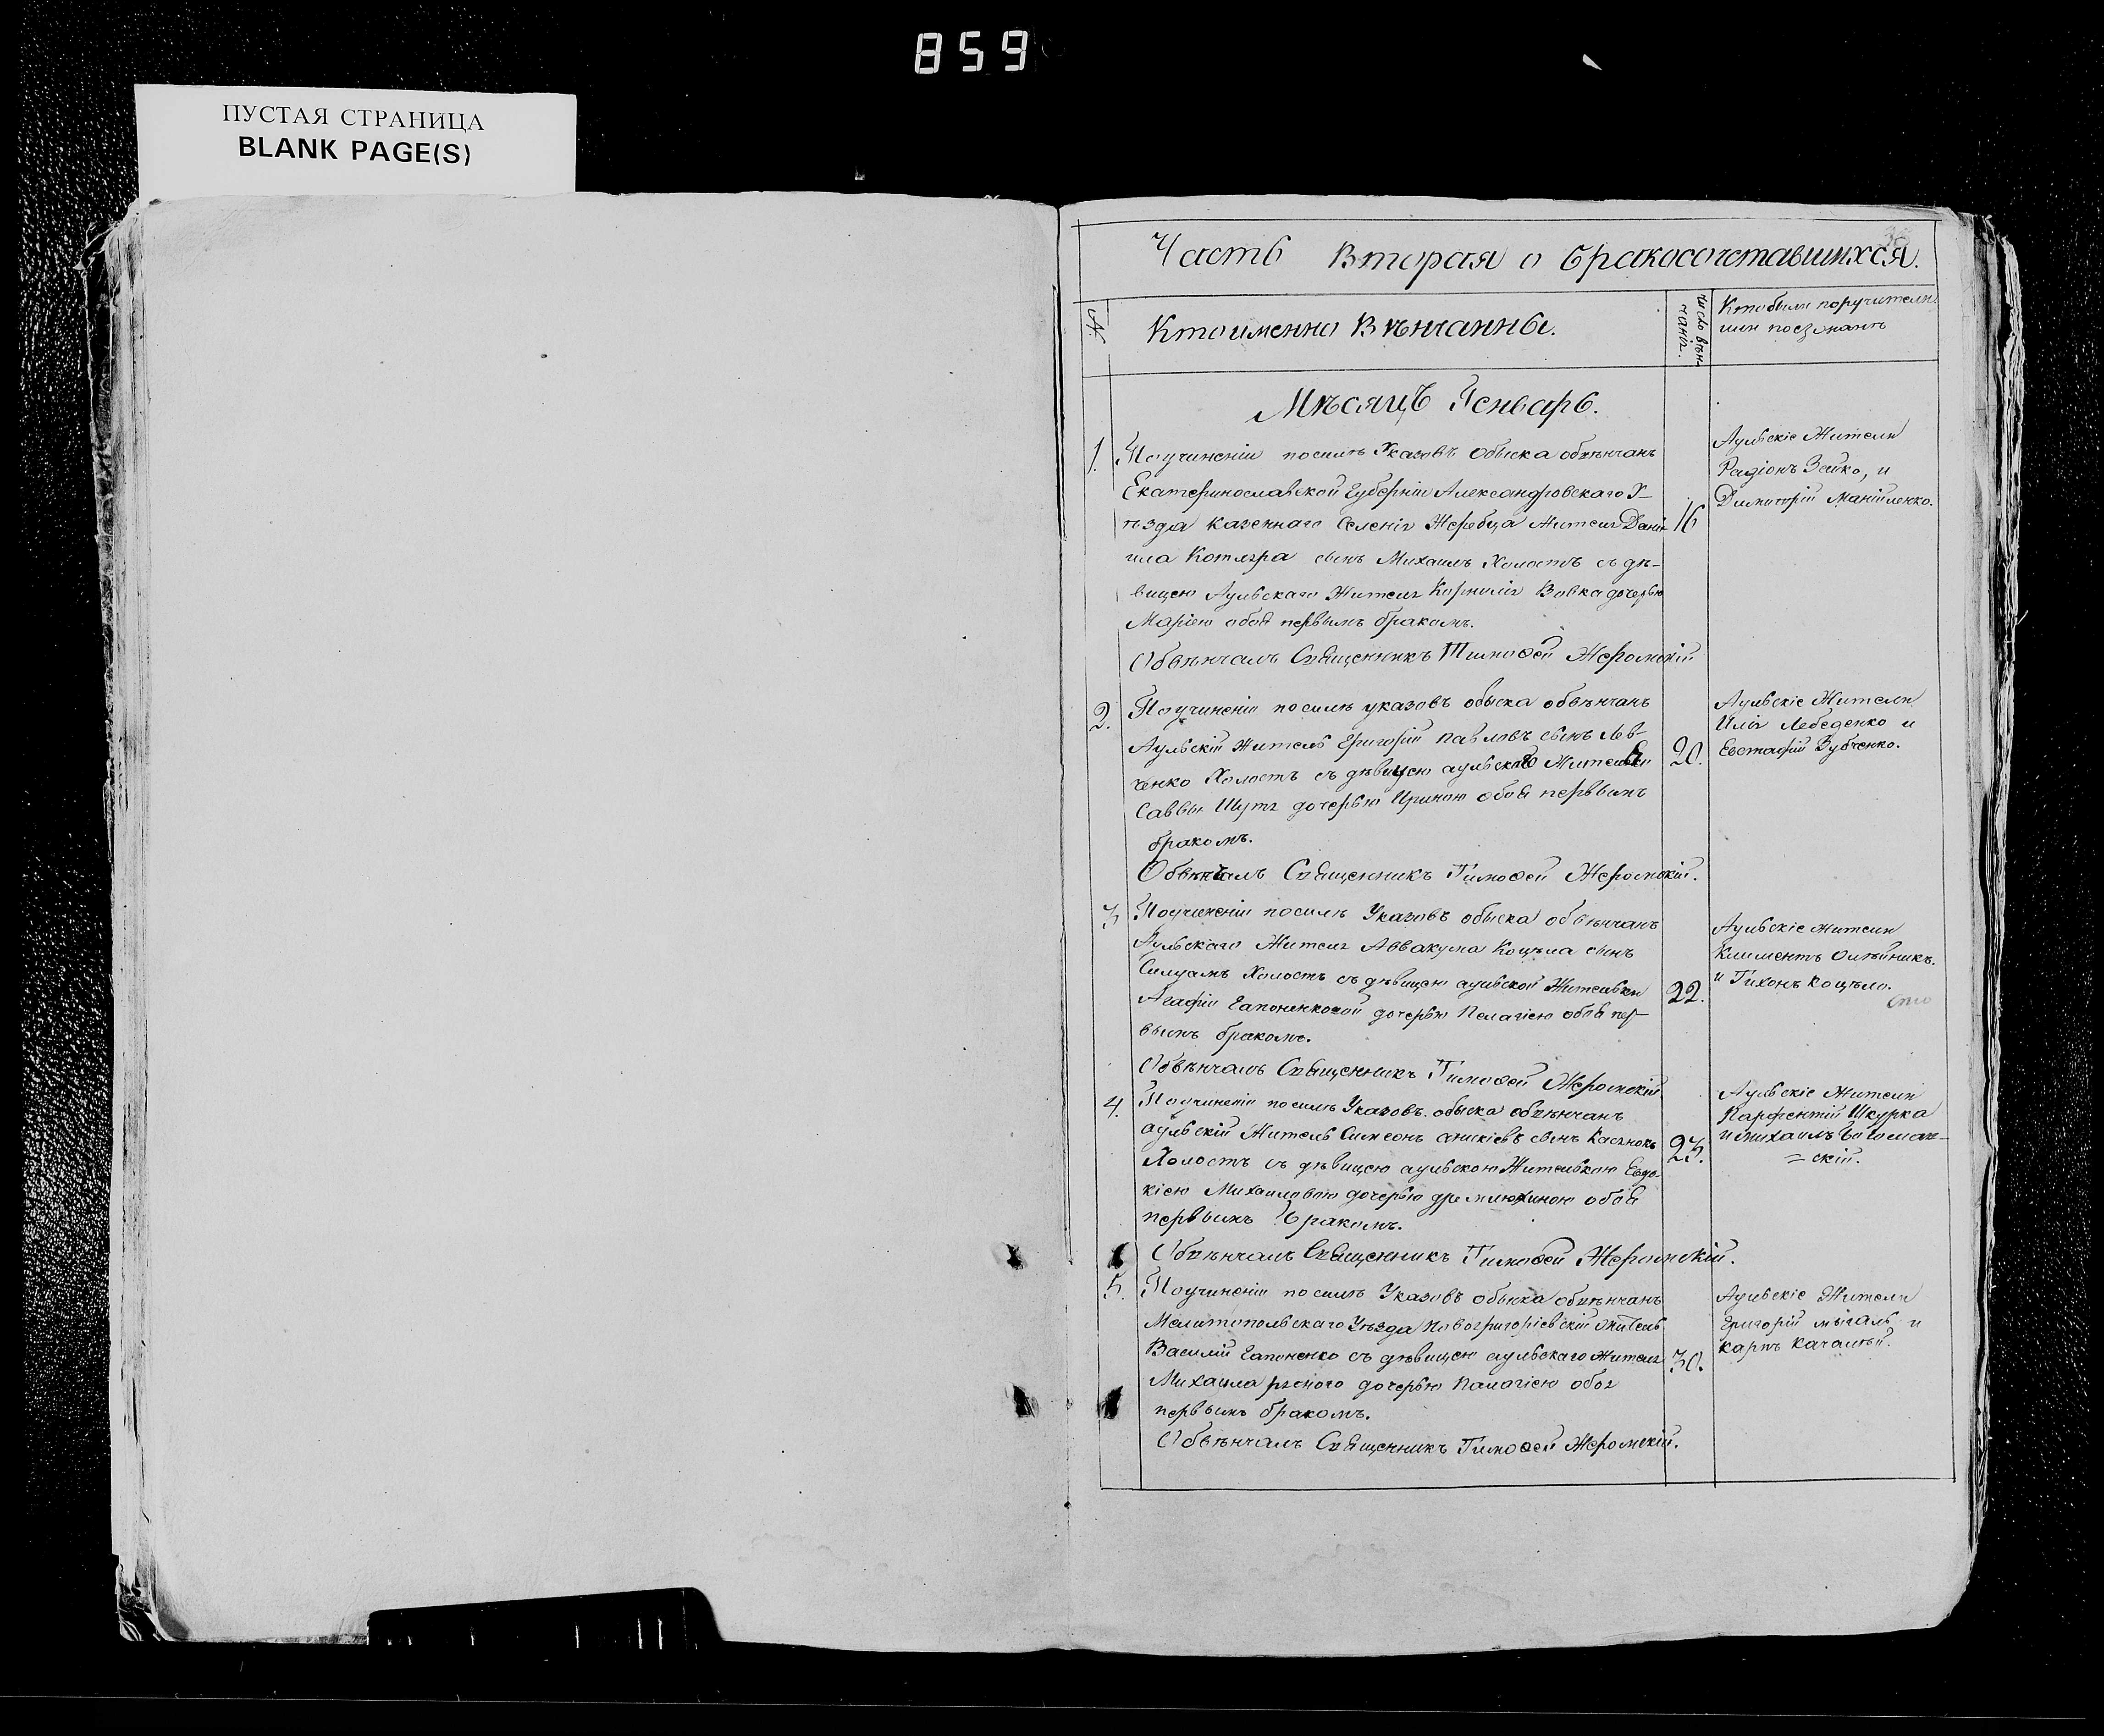 859
ПУСТАЯ СТРАНИЦА
BLANK PAGE(S)
Часть Вторая о бракосочетавшихся.
№.
Кто именно Вѣнчанны.
число вѣн-
чанія.
Кто были поручители
или поезжанѣ
Мѣсяцъ Генварь.
1.
По учиненіи посилѣ Указовъ обыска обвѣнчанъ
Екатеринославской Губерніи Александровскаго У-
ѣзда казеннаго селенія Жеребца Жителя Дані-
ила Котляра сынъ Михаилъ Холостъ съ дѣ-
вицею Аульскаго Жителя Корнилія Вовка дочерью
Маріею обоя первымъ бракомъ.
Обвѣнчалъ Священникъ Тимофей Жеромскій
16
Аульскіе Жители
Радіонъ Зайко, и
Димитрій Маніиленко.
2.
По учиненіи посилѣ указовъ обыска обвѣнчанъ
Аульскій житель Григорій Павловъ сынъ Лев-
ченко Холостъ съ дѣвицею аульской Жительки
Саввы Шутя дочерью Ириною обоя первымъ
бракомъ.
Обвѣнчалъ Священникъ Тимофей Жеромскій.
20.
Аульскіе Жители
Илія Лебеденко и
Евстафій Зубченко.
3
По учиненіи посилѣ Указовъ обыска обвѣнчанъ
Аульскаго Жителя Аввакума Коцѣла сынъ
Силуамъ Холостъ съ дѣвицею аульской Жительки
Агафіи Гапоненковой дочерью Пелагіею обоя пер-
вымъ бракомъ.
Обвѣнчалъ Священникъ Тимофей Жеромскій
22.
Аульскіе жители
Климентъ Олѣйникъ.
и Тихонъ Коцѣло.
4.
По учиненіи посилѣ Указовъ обыска обвѣнчанъ
аульскій Житель Симеонъ аникіевъ сынъ
Холостъ съ дѣвицею аульскою Жителькою Евдо-
кіею Михаиловою дочерью дремлюхиною обоя
первымъ бракомъ.
Обвѣнчалъ Священникъ Тимофей Жеромскій.
23.
Аульскіе Жители
Парфентій Шкурка
и михаилъ
=скій.
5.
По учиненіи посилѣ Указовъ обыска обвѣнчанъ
Мелитопольскаго Уѣзда Новогригоріевскій житель
Василій Гапоненко съ дѣвицею аульскаго жителя
Михаила рясного дочерью Палагіею обоя
первымъ бракомъ.
Обвѣнчалъ Священникъ Тимофей Жеромскій.
30.
Аульскіе Жители
Григорій мыгаль и
карпъ качалый.